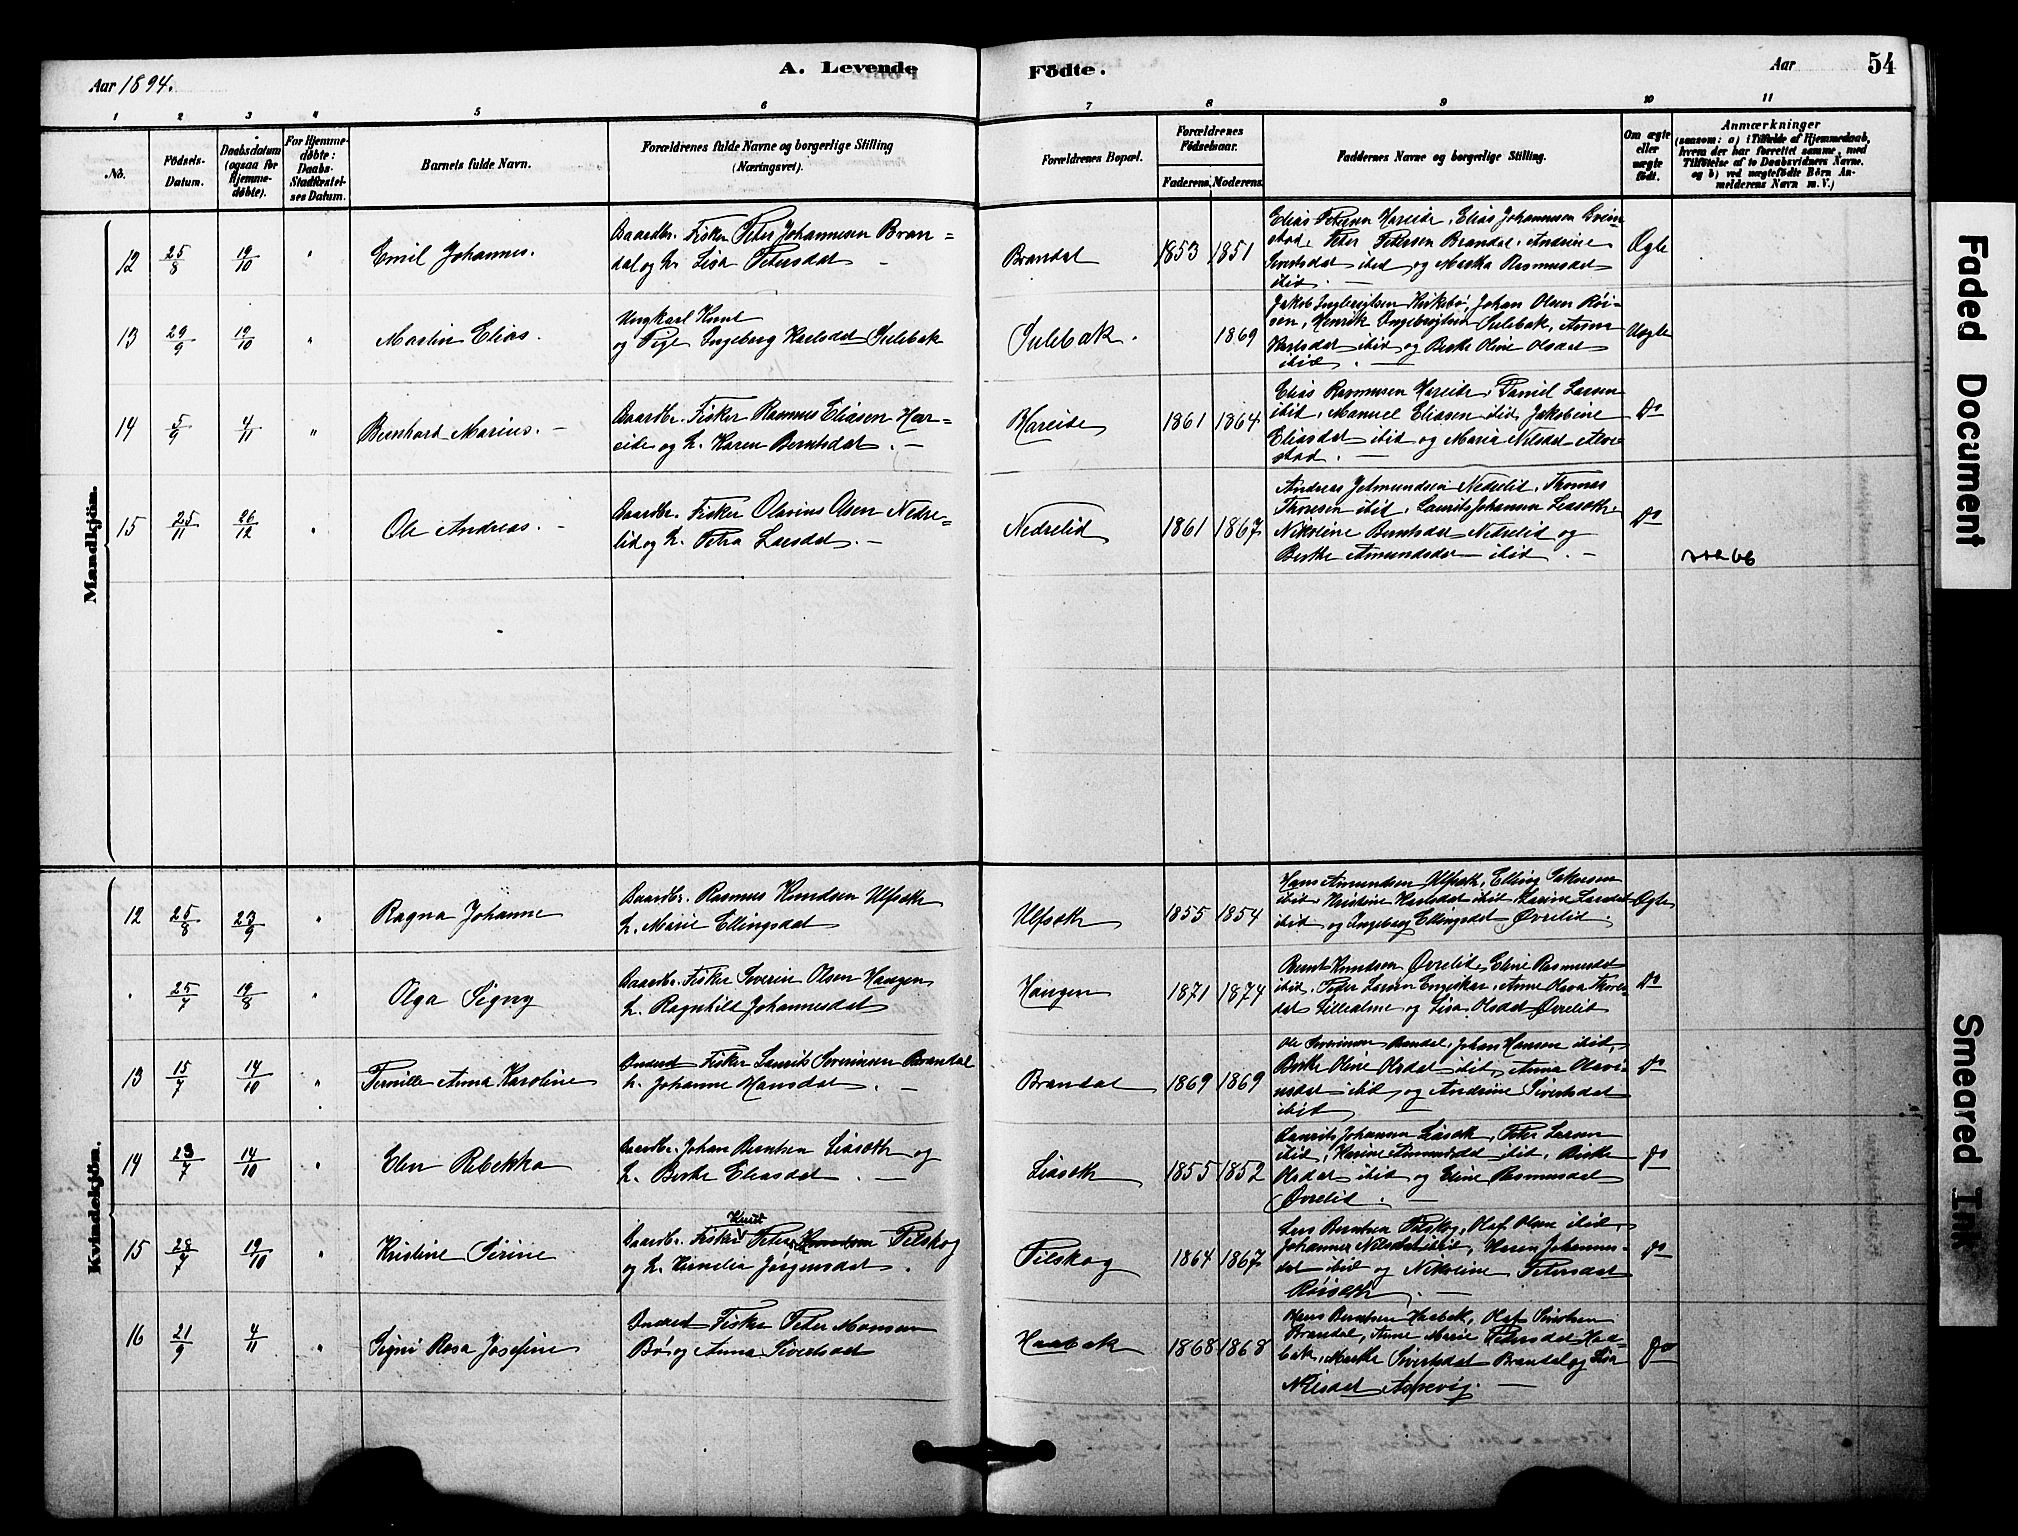 Aar 1894.
A. Levende
Födte.
Aar
54
1 2 3 4 5 6 7 8 9 10 11
No.
Födsels-
Datum.
Daabsdatum
(ogsaa for
Hjemme-
döbte).
For Hjemme-
døbte:
Daabs-
Stadfæstel-
ses Datum.
Barnets fulde Navn.
Forældrenes fulde Navne og borgerlige Stilling
(Næringsvei).
Forældrenes Bopæl.
Forældrenes
Födselsaar.
Faderens. Moderens.
Faddernes Navne og borgerlige Stilling.
Om ægte
eller
uægte
födt.
Anmærkninger
(saasom: a) i Tilfælde af Hjemmedaab,
hvem der har forrettet samme, med
Tilföielse af to Daabsvidners Navne.
og b) ved uægtefödte Börn An-
melderens Navn m. V.)
Mandkjön.
12 25/8 19/10 " Emil Johannes.
Gaardbr. Fisker Peter Johannesen Bran=
dal og h. Lisa Petersdat
Brandal 1853 1851
Elias Petersen Hareide, Elias Johannesen Grim-
stad, Peter Petersen Brandal, Andrine
Sivertsdat ibid og Martha Rasmusdat
ibid. —
Ægte
13 29/9 19/10 " Martin Elias.
Ungkarl Knut
og Pige Ingeborg Karlsdat Sulebak
Sulebak. 1869
Jakob Ingebrigtsen Kirkebø, Johan Olsen Röi-
sen, Henrik Ingebrigtsen Sulebak, Anna
Karlsdat ibid og Berthe Oline Olsdat
ibid. —
Uægte
14 5/9 4/11 " Bernhard Marius. —
Gaardbr. Fisker Rasmus Eliasen Har=
eide og h. Karen Berntsdat. —
Hareide 1861 1864
Elias Rasmusen Hareide, Daniel Larsen
ibid, Manuel Eliasen ibid, Jakobine
Eliasdat ibid og Maria Nilsdat Alve-
stad. —
Do
15 25/11 26/12 " Ole Andreas. —
Gaardbr. Fisker Olavius Olsen Nedre=
lid og h. Petra Larsdat. —
Nedrelid 1861 1867
Andreas Jetmundsen Nedrelid, Thomas
Thoresen ibid, Laurits Johansen Liasæth,
Nikoline Berntsdat Nedrelid og
Berthe Amundsdat ibid. —
Do
Kvindekjön.
12 25/8 23/9 " Ragna Johanne
Gaardbr. Rasmus Knudsen Ulfsæth
h. Marie Ellingsdat
Ulfsæth 1855 1854
Hans Amundsen Ulfsæth, Elling
ibid, Kristine Karlsdat ibid, Karine Larsdat
ibid og Ingeborg Ellingsdat Øvrelid.
Ægte
" 25/7 19/8 " Olga Signy
Gaardbr. Fisker Severin Olsen Haugen
h. Ragnhild Johannesdat
Haugen 1871 1874
Bernt Knudsen Øvrelid, Eline Rasmusdat
ibid, Peder Larsen Engeskar, Anne Olava Thores-
dat Lilledalme og Lisa Olsdat Øvrelid
Do
13 15/7 14/10 " Pernille Anna Karoline
Inderst Fisker Laurits Severinsen Brandal
h. Johanne Hansdat. —
Brandal 1869 1869
Ole Severinsen Brandal, Johan Hansen ibid,
Berthe Oline Olsdat ibid, Anna Olavi-
usdat ibid og Andrine Sivertsdat
ibid —
Do
14 23/7 14/10 " Elen Rebekka
Gaardbr. Johan Berntsen Liasæth og
h. Berthe Eliasdat. —
Liasæth 1855 1852
Laurits Johansen Liasæth, Peter Larsen
ibid, Karine Amundsdat ibid, Berthe
Olsdat ibid og Eline Rasmusdat
Øvrelid. —
Do
15 28/7 19/10 " Kristine Sirine
Knut
Gaardbr. Fisker Peter Knutsen Pilskog
og h. Kornelia Jørgensdat.
Pilskog 1864 1867
Lars Berntsen Pilskog, Olaf Olsen ibid,
Johanne Nilsdat ibid, Karen Johannes-
dat ibid og Nikoline Petersdat
Röisæth. —
Do
16 21/9 4/11 " Signi Rosa Josefine
Inderst Fisker Peter Monsen
Bø og Anna Sivertsdat
Haabak 1868 1868
Hans Berntsen Haabak, Olaf Sivertsen
Brandal, Anne Marie Petersdat Haa-
bak, Marthe Sivertsdat Brandal og Lisa
Nilsdat Aspevig. —
Do
Faded Document
Smeared Ink